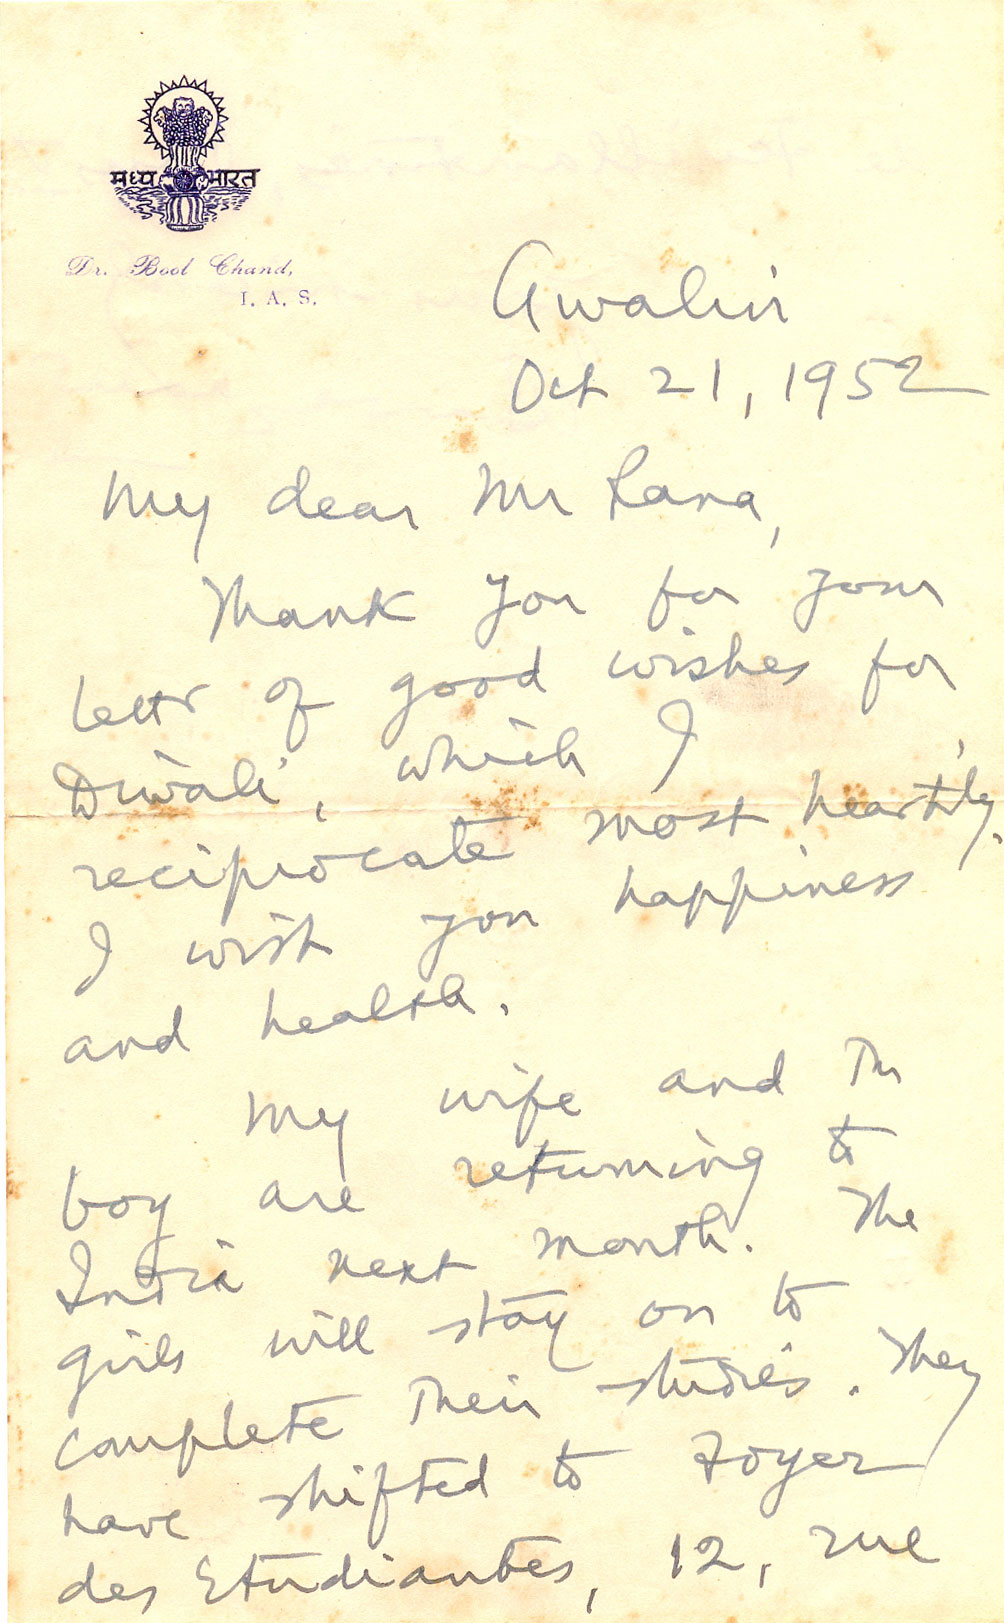 मध्य भारत
Dr. Bool Chand,
I. A. S.
Gwalior
Oct 21, 1952
My dear Mr Rana,
Thank you for your
letter of good wishes for
Diwali, which I
reciprocate most heartily.
I wish you happiness
and health.
My wife and the
boy are returning to
India next month. The
girls will stay on to
complete their studies. They
have shifted to Foyer
des Etudiantes, 12, rue